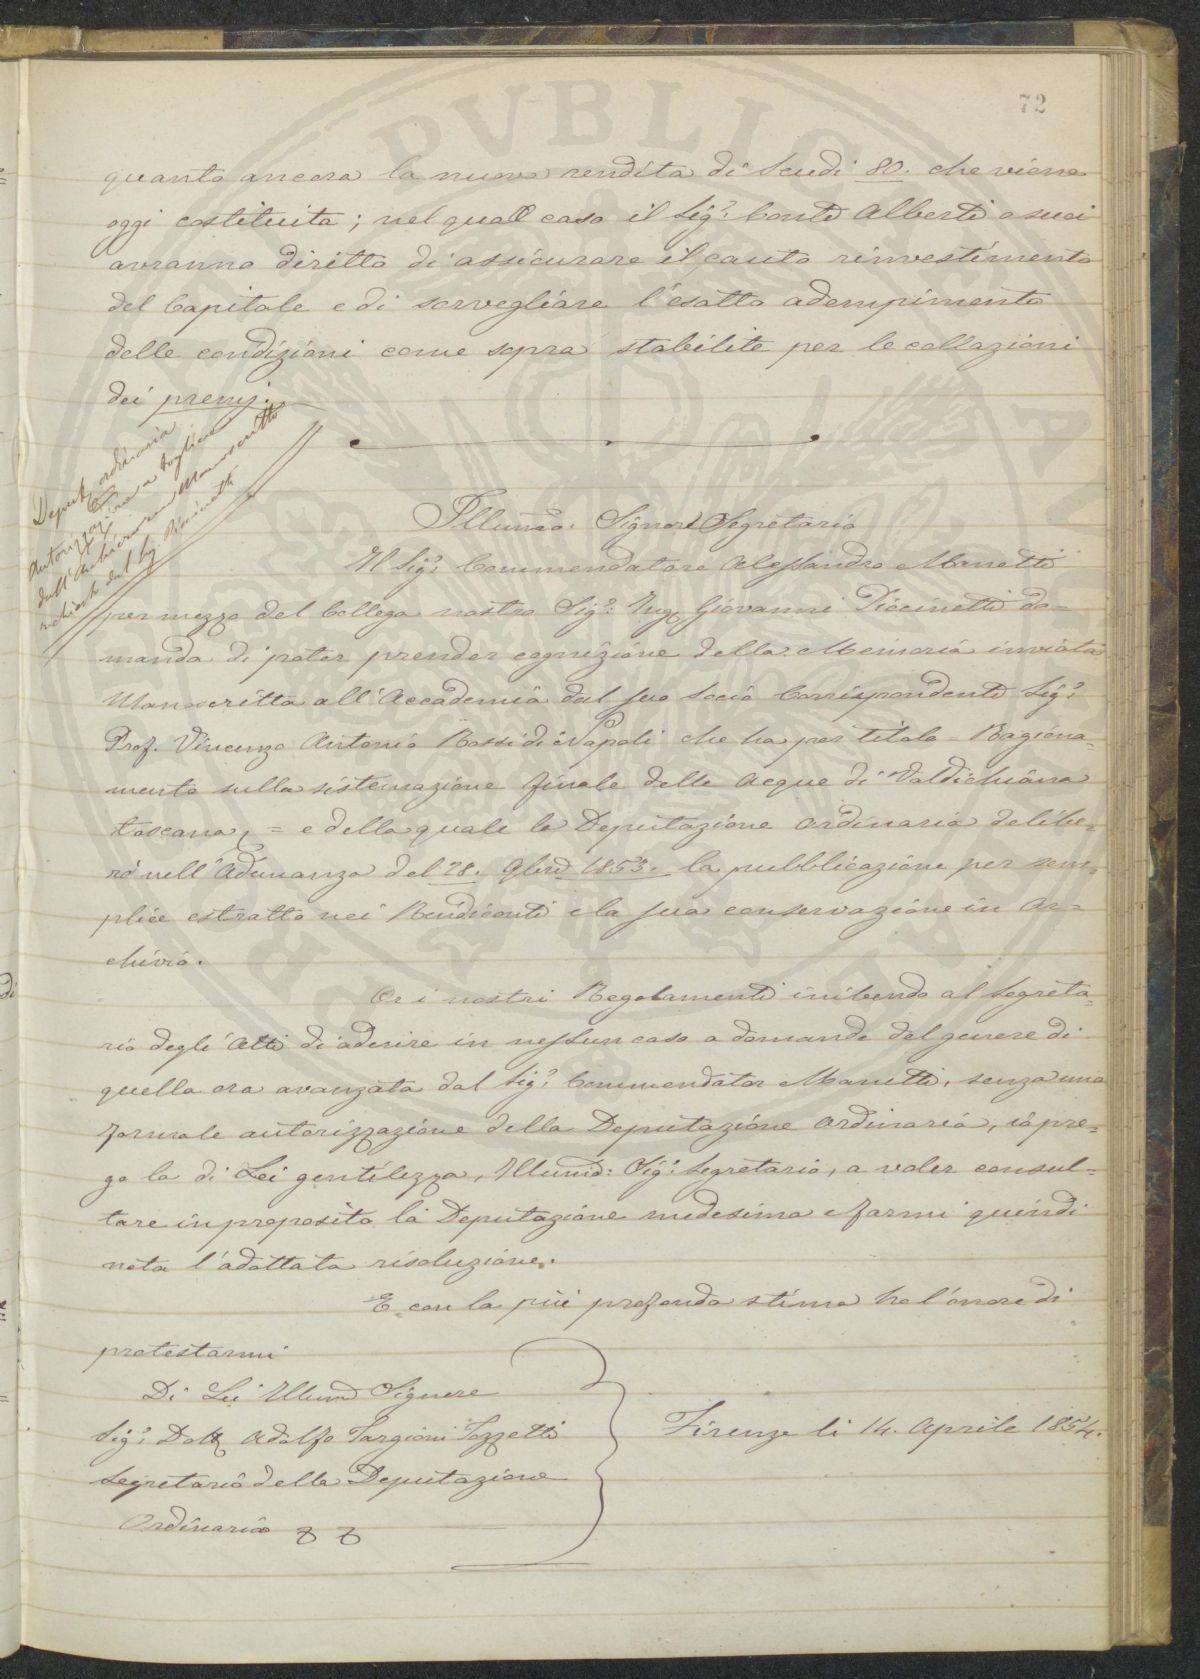 72
quanto ancora la nuova rendita di Scudi 80. che viene
oggi costituita; nel qual caso il Sig:r Conte Alberti o suoi
avranno diritto di assicurare il cauto rinvestimento
del Capitale e di sorvegliare l'esatto adempimento
delle condizioni come sopra stabilite per le collazioni
dei premj.
Deput. ordinaria
Autorizzazione a togliere
dall'Archivio un Manoscritto
richiesto dal Sig. Piccinetti
Illumo: Signore Segretario
Il Sig:r Commendatore Alessandro Manetti
per mezzo del Collega nostro Sig:r Ing. Giovanni Piccinetti do=
manda di poter prender cognizione della Memoria inviata
Manoscritta all'Accademia dal suo Socio Corrispondente Sig:r
Prof. Vincenzo Antonio Rossi di Napoli che ha per titolo = Ragiona=
mento sulla sistemazione finale delle Acque di Valdichiana
toscana, = e della quale la Deputazione ordinaria delibe=
rò nell'Adunanza del 28. 9bre 1853. la pubblicazione per sem=
plice estratto nei Rendiconti e la sua conservazione in Ar=
chivio.
Or i nostri Regolamenti inibendo al Segreta=
rio degli Atti di aderire in nessun caso a domande del genere di
quella ora avanzata dal Sig:r Commendator Manetti, senza una
formale autorizzazione della Deputazione Ordinaria, io pre=
go la di Lei gentilezza, Illumo: Sig:r Segretario, a voler consul=
tare in proposito la Deputazione medesima e farmi quindi
nota l'adottata risoluzione.
E con la più profonda stima ho l'onore di
protestarmi
Di Lei Illumo Signore
Sig:r Dott. Adolfo Targioni Tozzetti
Segretario della Deputazione
Ordinaria
Firenze li 14. Aprile 1854.